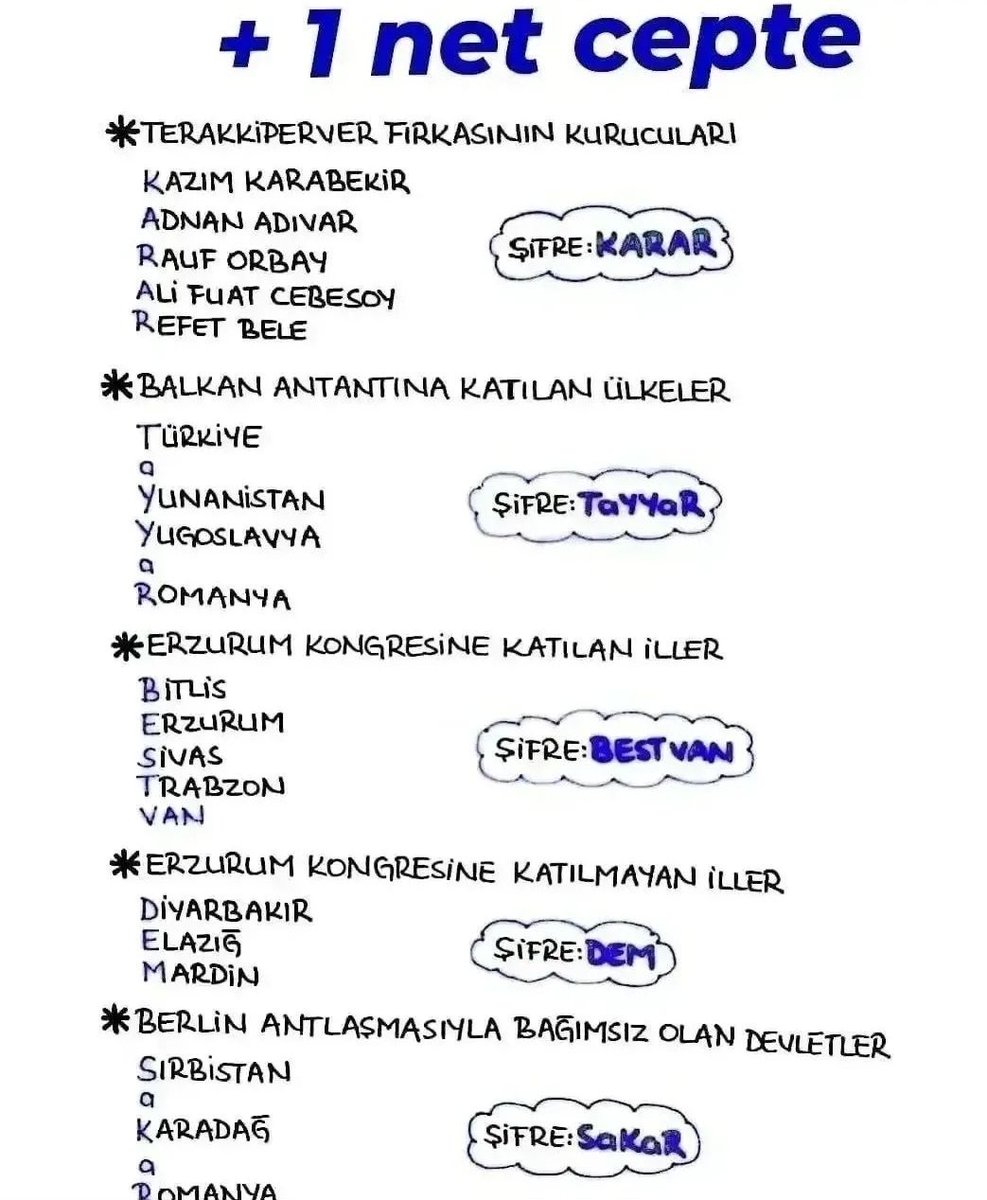 + 1 net cepte
*TERAKKİPERVER FIRKASININ KURUCULARI
KAZIM KARABEKİR
ADNAN ADIVAR
RAUF ORBAY
ALİ FUAT CEBESOY
REFET BELE
ŞİFRE:KARAR
*BALKAN ANTANTINA KATILAN ÜLKELER
TÜRKİYE
a
YUNANİSTAN
YUGOSLAVYA
a
ROMANYA
ŞİFRE:TaYYaR
*ERZURUM KONGRESİNE KATILAN İLLER
BİTLİS
ERZURUM
SİVAS
TRABZON
VAN
ŞİFRE:BESTVAN
*ERZURUM KONGRESİNE KATILMAYAN İLLER
DİYARBAKIR
ELAZIĞ
MARDİN
ŞİFRE:DEM
*BERLİN ANTLAŞMASIYLA BAĞIMSIZ OLAN DEVLETLER
SIRBİSTAN
a
KARADAĞ
a
ROMANYA
ŞİFRE:SaKaR